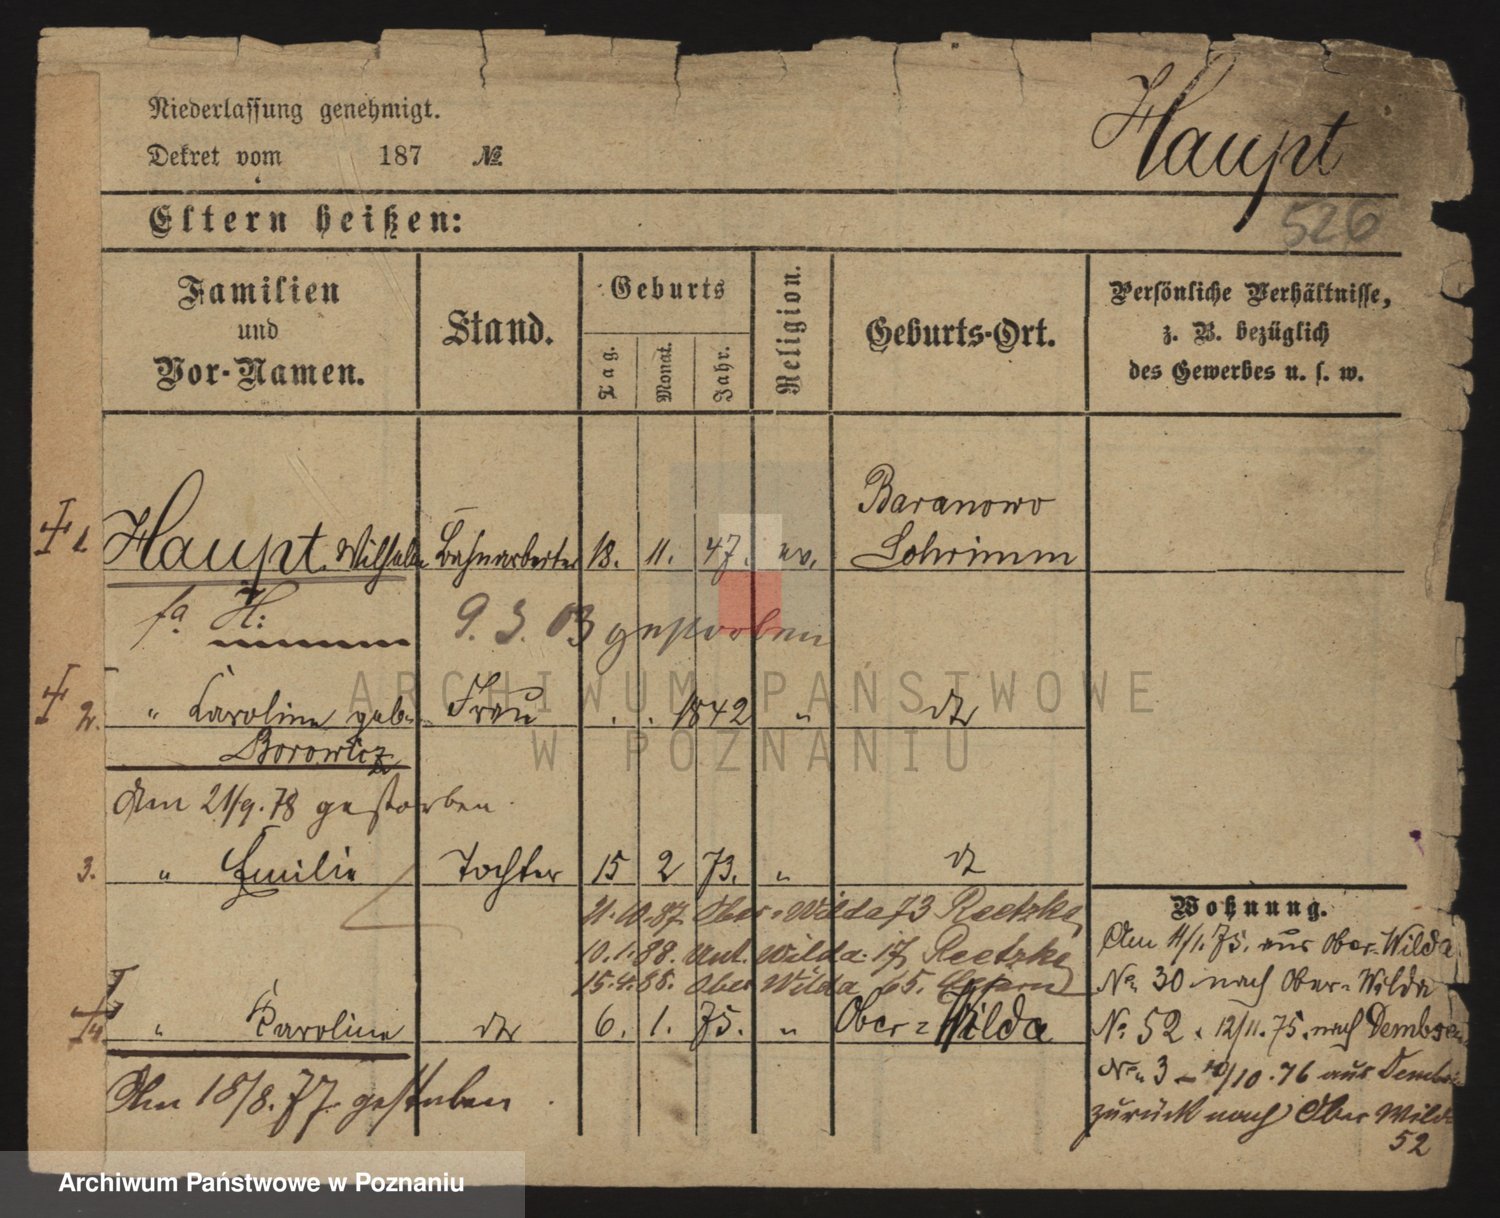 Niederlassung genehmigt.
Dekret vom 187 №
Haupt
526
Eltern heißen:
Familien und Vor-Namen.
Stand.
Geburts
Tag. Monat. Jahr.
Religion.
Geburts-Ort.
Persönliche Verhältnisse,
z. B. bezüglich
des Gewerbes u. s. w.
Baranowo
1. Haupt Wilhelm Bahnarbeiter 18. 11. 47. ev. Schrimm
H: 9. 3. 03 gestorben
2. " Caroline geb. Frau . . 1842 " dto
Borowicz
Am 21/9. 78 gestorben.
3. " Emilie Tochter 15 2 73. " dto
Wohnung.
21.10.87. Ober-Wilda 73 Reetzke
10.1.88. Unt. Wilda 17 Reetzke
15.4.88. Ober Wilda 65.
4. " Karoline dto 6. 1. 75. " Ober-Wilda
Am 18/8. 77. gestorben.
Am 11/1. 75. aus Ober-Wilda
No. 30 nach Ober-Wilda
No. 52. 12/11. 75. nach Dembsen
No. 3 10/10. 76 aus
zurück nach Ober Wilda
52
ARCHIWUM PAŃSTWOWE
W POZNANIU
Archiwum Państwowe w Poznaniu